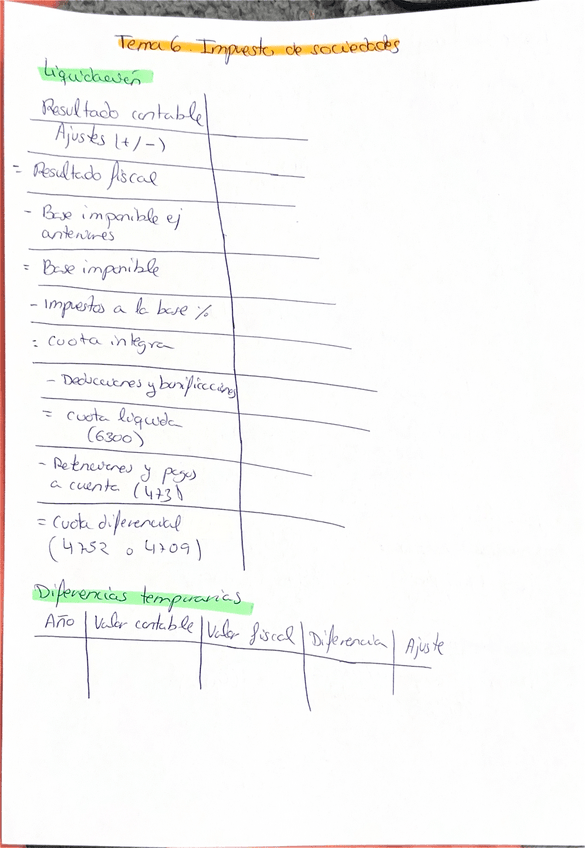 Tema 6. Impuesto de sociedades
Liquidación
Resultado contable
Ajustes (+/-)
= Resultado fiscal
- Base imponible ej
anteriores
= Base imponible
- Impuestos a la base %
= cuota integra
- Deducciones y bonificaciones
= cuota líquida
(6300)
- Retenciones y pagos
a cuenta (473)
= Cuota diferencial
(4752 o 4709)
Diferencias temporarias
Año | Valor contable | Valor fiscal | Diferencia | Ajuste